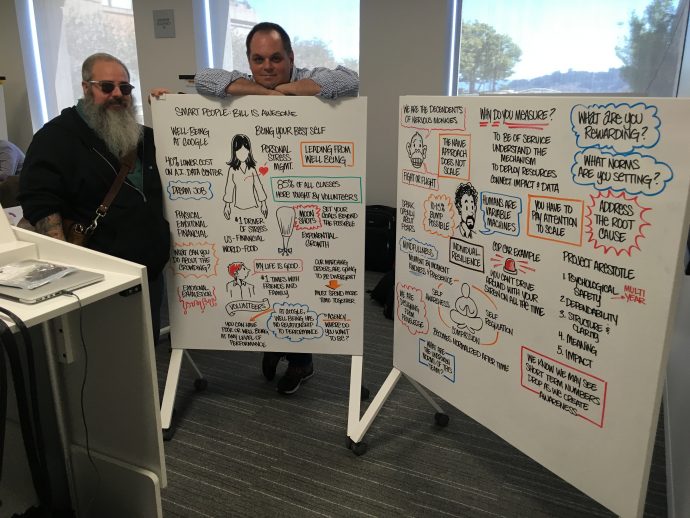 SMART PEOPLE - BILL IS AWESOME
WELL-BEING
AT GOOGLE
40% LOWER COST
ON A.I. DATA CENTER
DREAM JOB
PHYSICAL
EMOTIONAL
FINANCIAL
WHAT CAN YOU
DO ABOUT THE
CROWDING?
EMOTIONAL
EXHAUSTION
BEING YOUR BEST SELF
PERSONAL
STRESS
MGMT.
LEADING FROM
WELL BEING
85% OF ALL CLASSES
HERE TAUGHT BY VOLUNTEERS
MOON
SHOTS
SET YOUR
GOALS BEYOND
THE POSSIBLE
#1 DRIVER OF
STRESS
US-FINANCIAL
WORLD-FOOD
EXPONENTIAL
GROWTH
MY LIFE IS GOOD.
#1 TIMES WITH
FRIENDS AND
FAMILY
OUR MARCHING
ORDERS ARE GOING
TO BE DIVERGENT
MUST SPEND MORE
TIME TOGETHER
VOLUNTEERS
YOU CAN HAVE
POOR OR WELL BEING
AT ANY LEVEL OF
PERFORMANCE
AT GOOGLE,
WELL-BEING HAS
NO RELATIONSHIP
TO PERFORMANCE
AGENCY
WHERE DO
YOU WANT
TO BE?
WE ARE THE DECENDENTS
OF NERVOUS MONKEYS
FIGHT OR FLIGHT
THE NAIVE
APPROACH
DOES NOT
SCALE
SPEAK
OPENLY
W/OUT
FEARS
BUMP
POSSIBLE
HUMANS ARE
VARIABLE
MACHINES
MINDFULNESS
MOMENT BY MOMENT
INDIVIDUAL
RESILIENCE
WE ARE
LEARNING
FROM
SELF
AWARENESS
SELF
REGULATION
COMPASSION
BECOMES NORMALIZED AFTER TIME
WHAT ARE
THE UNSPOKEN
NORMS OF THIS
TEAM?
WHY DO YOU MEASURE?
TO BE OF SERVICE
UNDERSTAND THE
MECHANISM
TO DEPLOY RESOURCES
CONNECT IMPACT & DATA
YOU HAVE TO
PAY ATTENTION
TO SCALE
COP CAR EXAMPLE
YOU CAN'T
DRIVE
AROUND WITH YOUR
SIREN ON ALL THE TIME
WHAT ARE YOU
REWARDING?
WHAT NORMS
ARE YOU SETTING?
ADDRESS
THE ROOT
CAUSE
PROJECT ARISTOTLE
1. PSYCHOLOGICAL
SAFETY
2. DEPENDABILITY
3. STRUCTURE &
CLARITY
4. MEANING
5. IMPACT
MULTI
YEAR
WE KNOW WE MAY SEE
SHORT TERM NUMBERS
DROP AS WE CREATE
AWARENESS